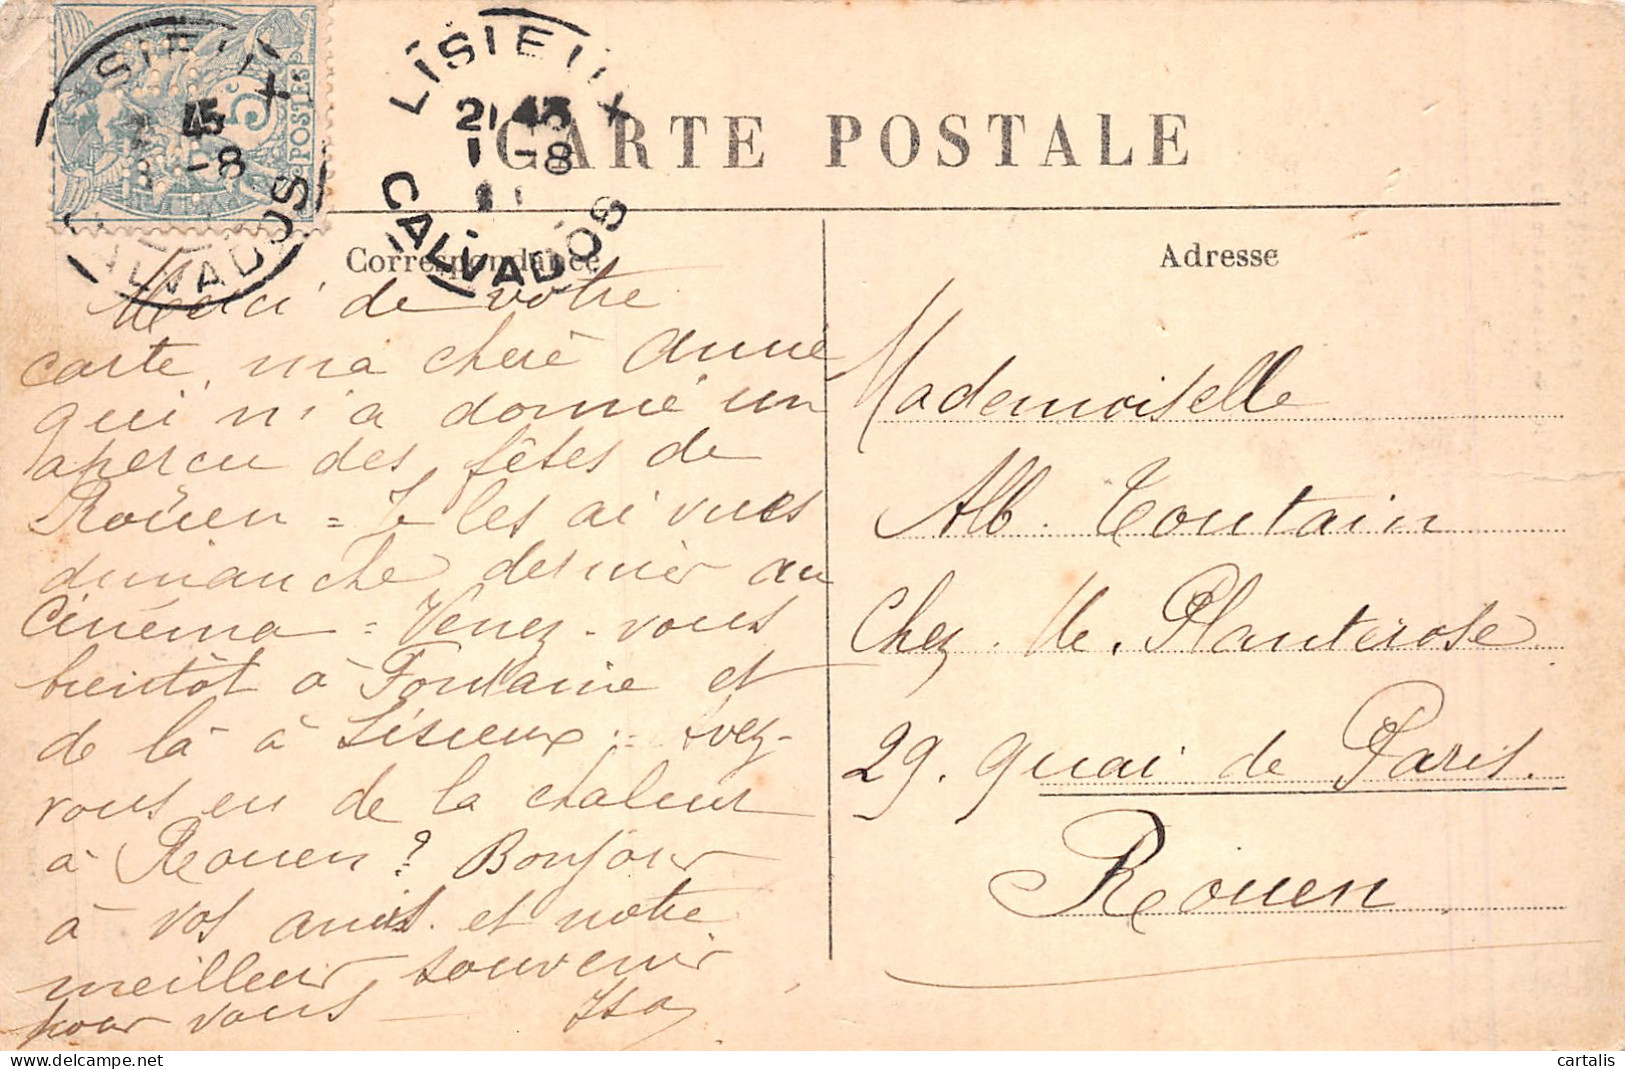 LISIEUX
45
-8
CALVADOS
5c
POSTES
LISIEUX
21 45
1 -8
11
CALVADOS
CARTE POSTALE
Correspondance
Adresse
Merci de votre
carte, ma chère amie,
qui m'a donné un
apercu des fêtes de
Roüen = Je les ai vues
dimanche dernier au
Cinéma = Venez-vous
bientôt à Fontaine et
de là à Lisieux = Avez-
vous eu de la chaleur
à Rouen? Bonjour
à vos amis et notre
meilleur souvenir
pour vous Isa
Mademoiselle
Alb. Toutain
Chez M. Planterose
29. quai de Paris.
Rouen
cartalis